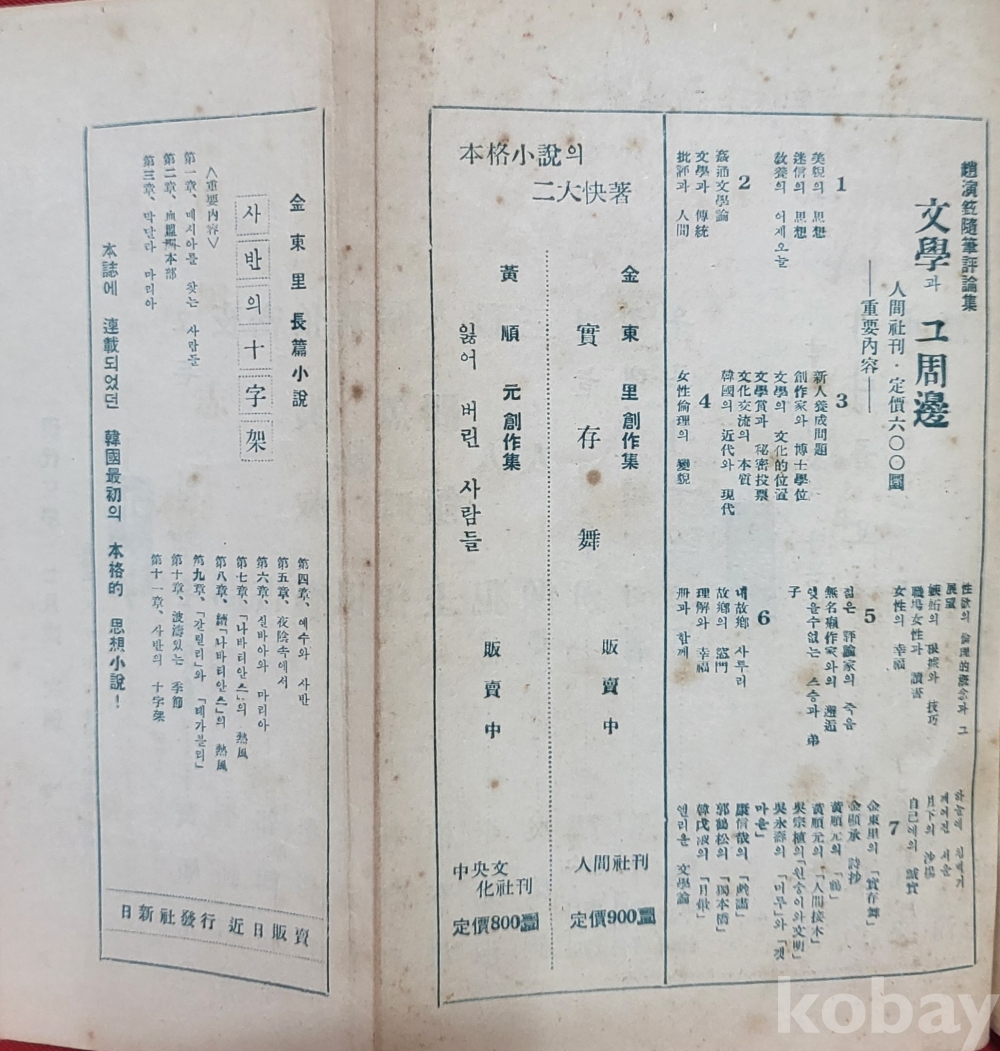 趙演鉉隨筆評論集
文學과 그周邊
人間社刊·定價六〇〇圜
──重要內容──
1
美貌의 思想
迷信의 思想
敎養의 어제오늘
2
姦通文學論
文學과 傳統
批評과 人間
3
新人養成問題
創作家와 博士學位
文學의 文化的位置
文學賞과 秘密投票
文化交流의 本質
韓國의 近代와 現代
4
女性倫理의 變貌
性欲의 倫理的槪念과 그
展望
嫉妬의 技巧
職場女性과 讀書
女性의 幸福
5
젊은 評論家의 죽음
無名顯作家와의 邂逅
잊을수없는 스승과 弟
子
6
내故鄕 사투리
故鄕의 窓門
理解와 幸福
册과 함께
하늘에
서울
月下의
自己에의 誠實
7
金東里의 「實存舞」
金顯承 詩抄
黃順元의 「鶴」
黃順元의 「人間接木」
吳宗植의 「원숭이와文明」
吳永壽의 「머루」와 「갯
마을」
康信哉의 「戱畵」
郭鶴松의 「獨木橋」
韓戊淑의 「月暈」
엘리옽 文學論
本格小說의
二大快著
金東里創作集
實存舞
販賣中
人間社刊
定價900圜
黃順元創作集
잃어 버린 사람들
販賣中
中央文
化社刊
定價800圜
金東里長篇小說
사반의十字架
<重要內容>
第一章、메시아를 찾는 사람들
第二章、血盟團本部
第三章、막달라 마리아
第四章、예수와 사반
第五章、夜陰속에서
第六章、실바아와 마리아
第七章、「나바티안츠」의 熱風
第八章、續「나바티안츠」의 熱風
第九章、「갈릴리」와 「데가볼리」
第十章、波濤있는 季節
第十一章、사반의 十字架
本誌에 連載되었던 韓國最初의 本格的 思想小說!
日新社發行 近日販賣
kobay